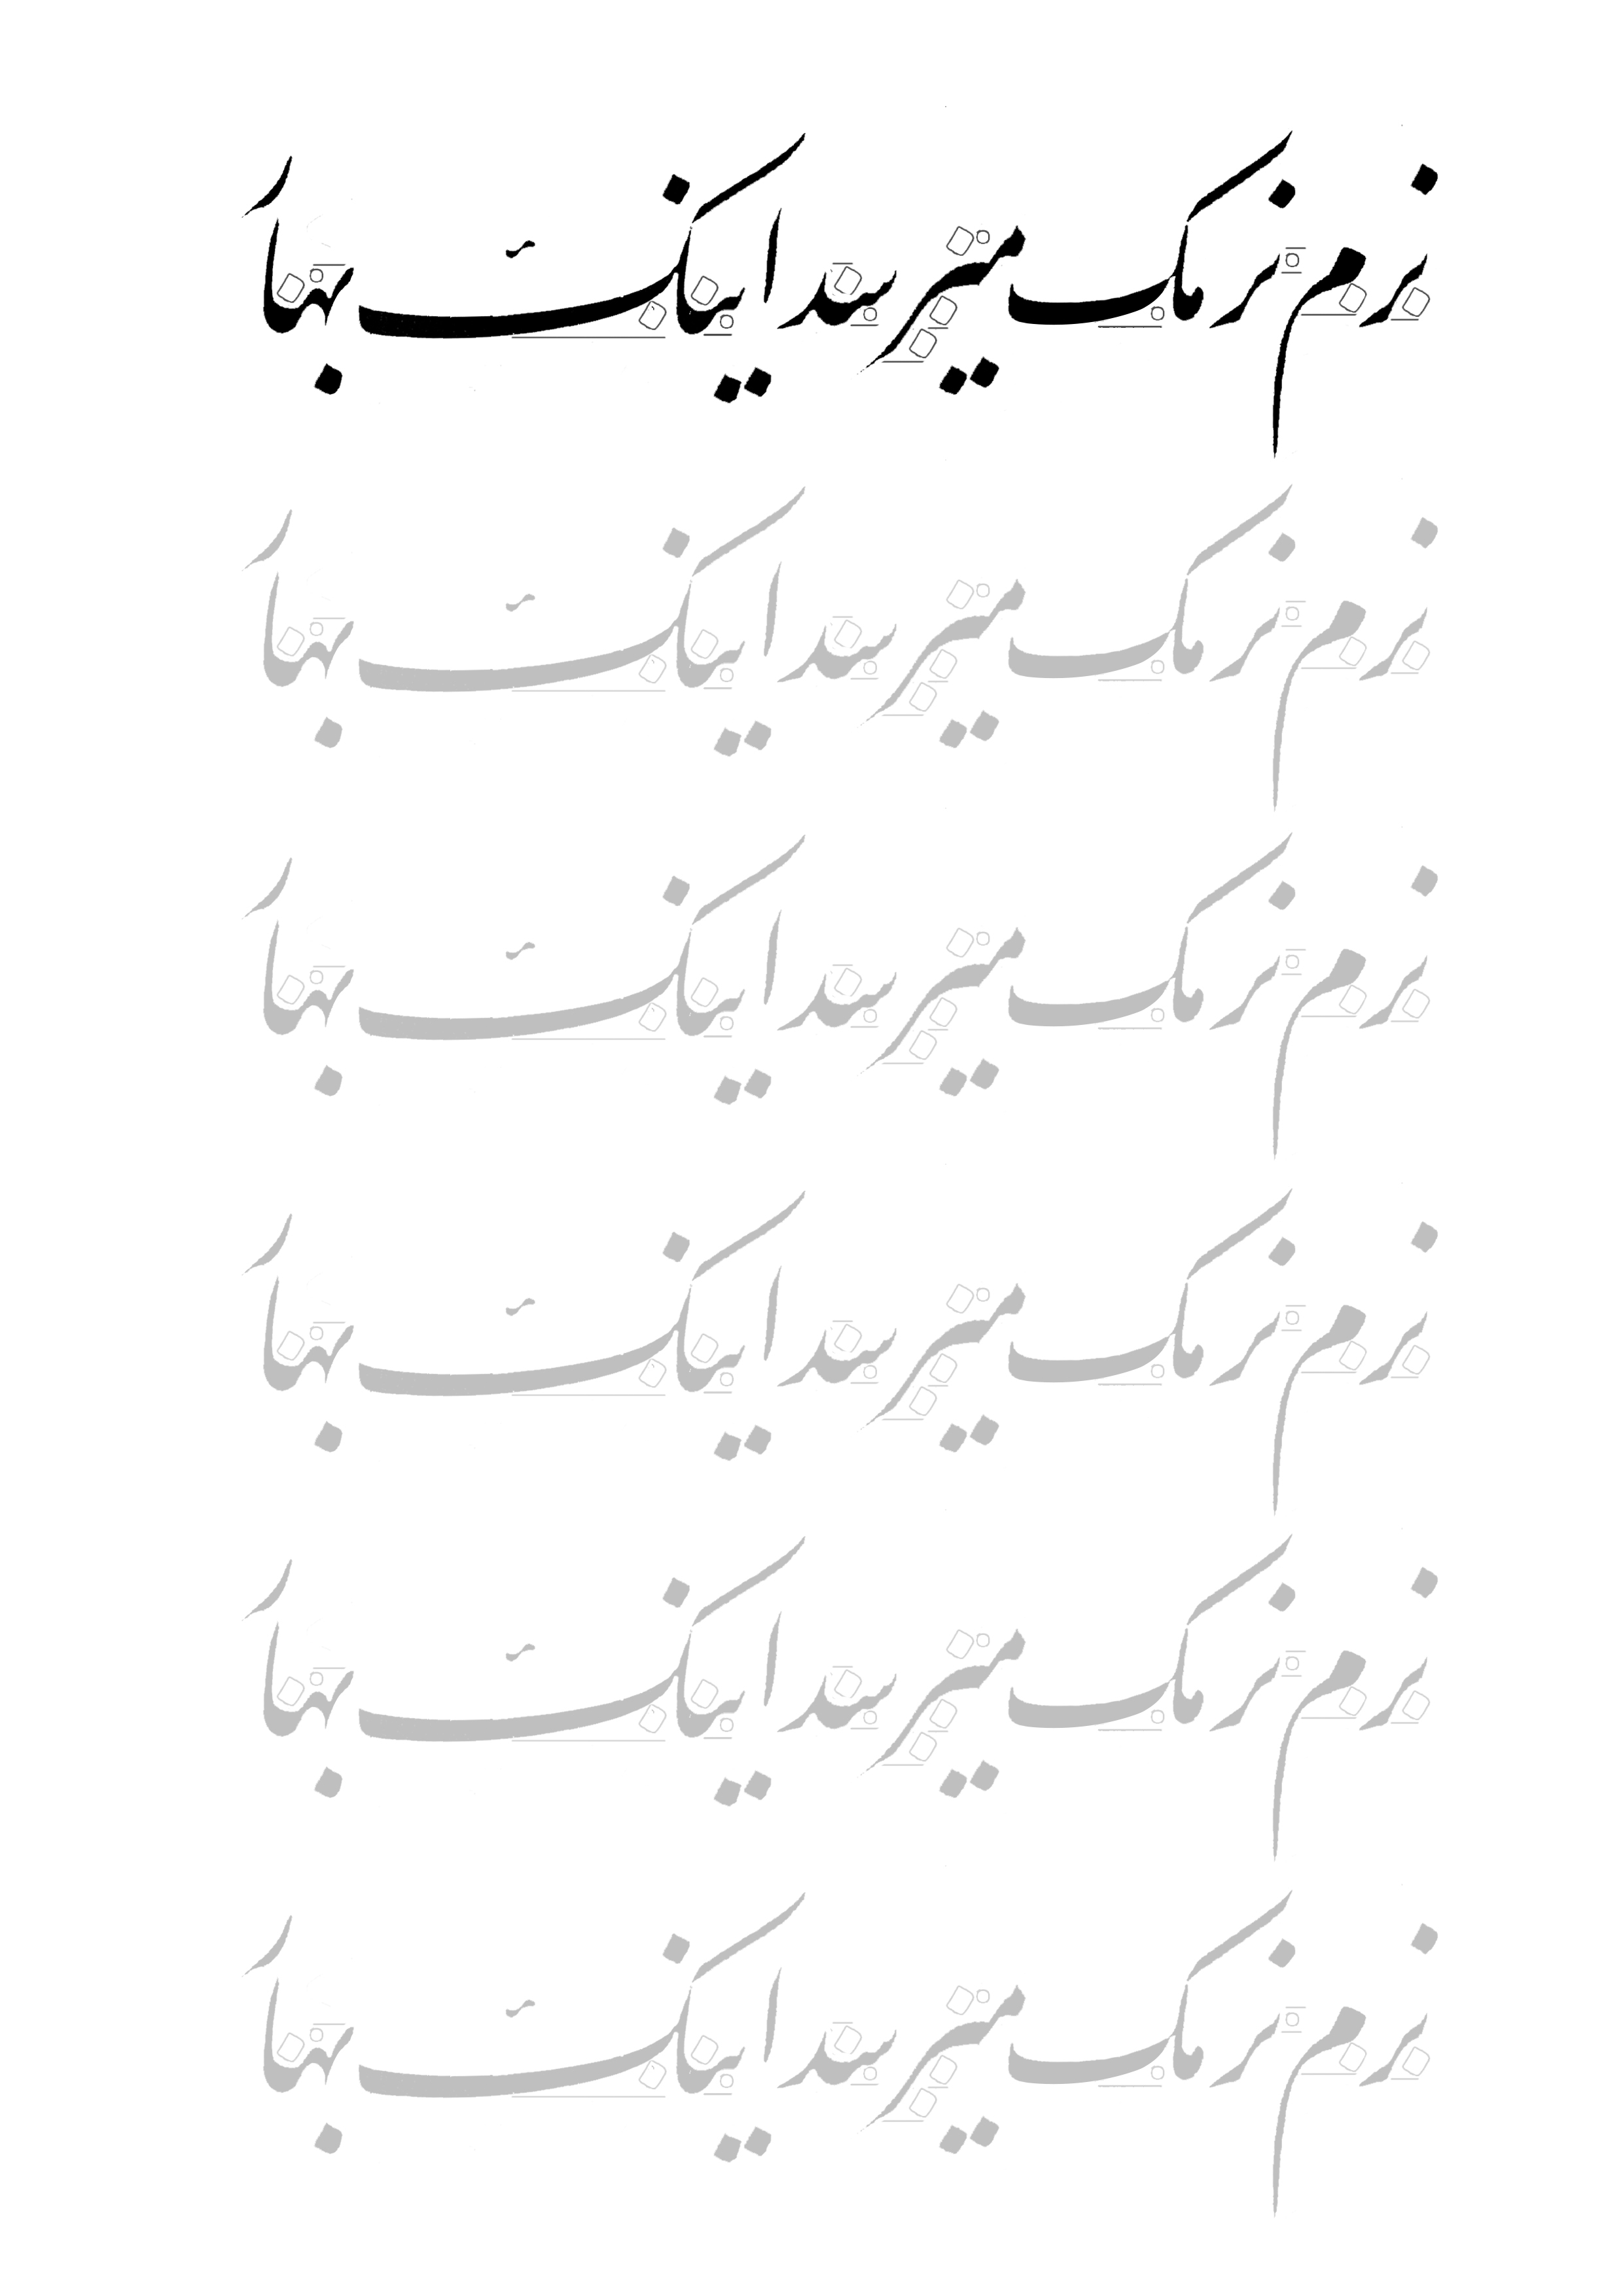 نرم نرمک میرسد اینک بهار
نرم نرمک میرسد اینک بهار
نرم نرمک میرسد اینک بهار
نرم نرمک میرسد اینک بهار
نرم نرمک میرسد اینک بهار
نرم نرمک میرسد اینک بهار